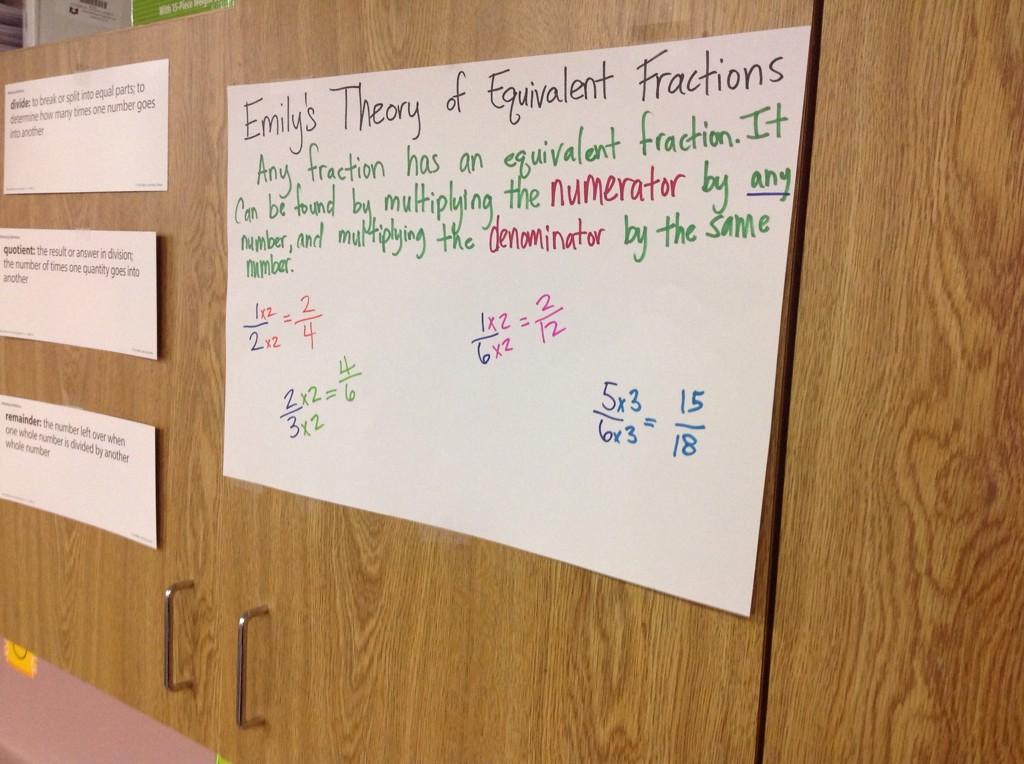 With 15-Piece
divide: to break or split into equal parts; to
determine how many times one number goes
into another
quotient: the result or answer in division;
the number of times one quantity goes into
another
remainder: the number left over when
one whole number is divided by another
whole number
Emily's Theory of Equivalent Fractions
Any fraction has an equivalent fraction. It
can be found by multiplying the numerator by any
number, and multiplying the denominator by the same
number.
1x2/2x2 = 2/4
1x2/6x2 = 2/12
2x2/3x2 = 4/6
5x3/6x3 = 15/18